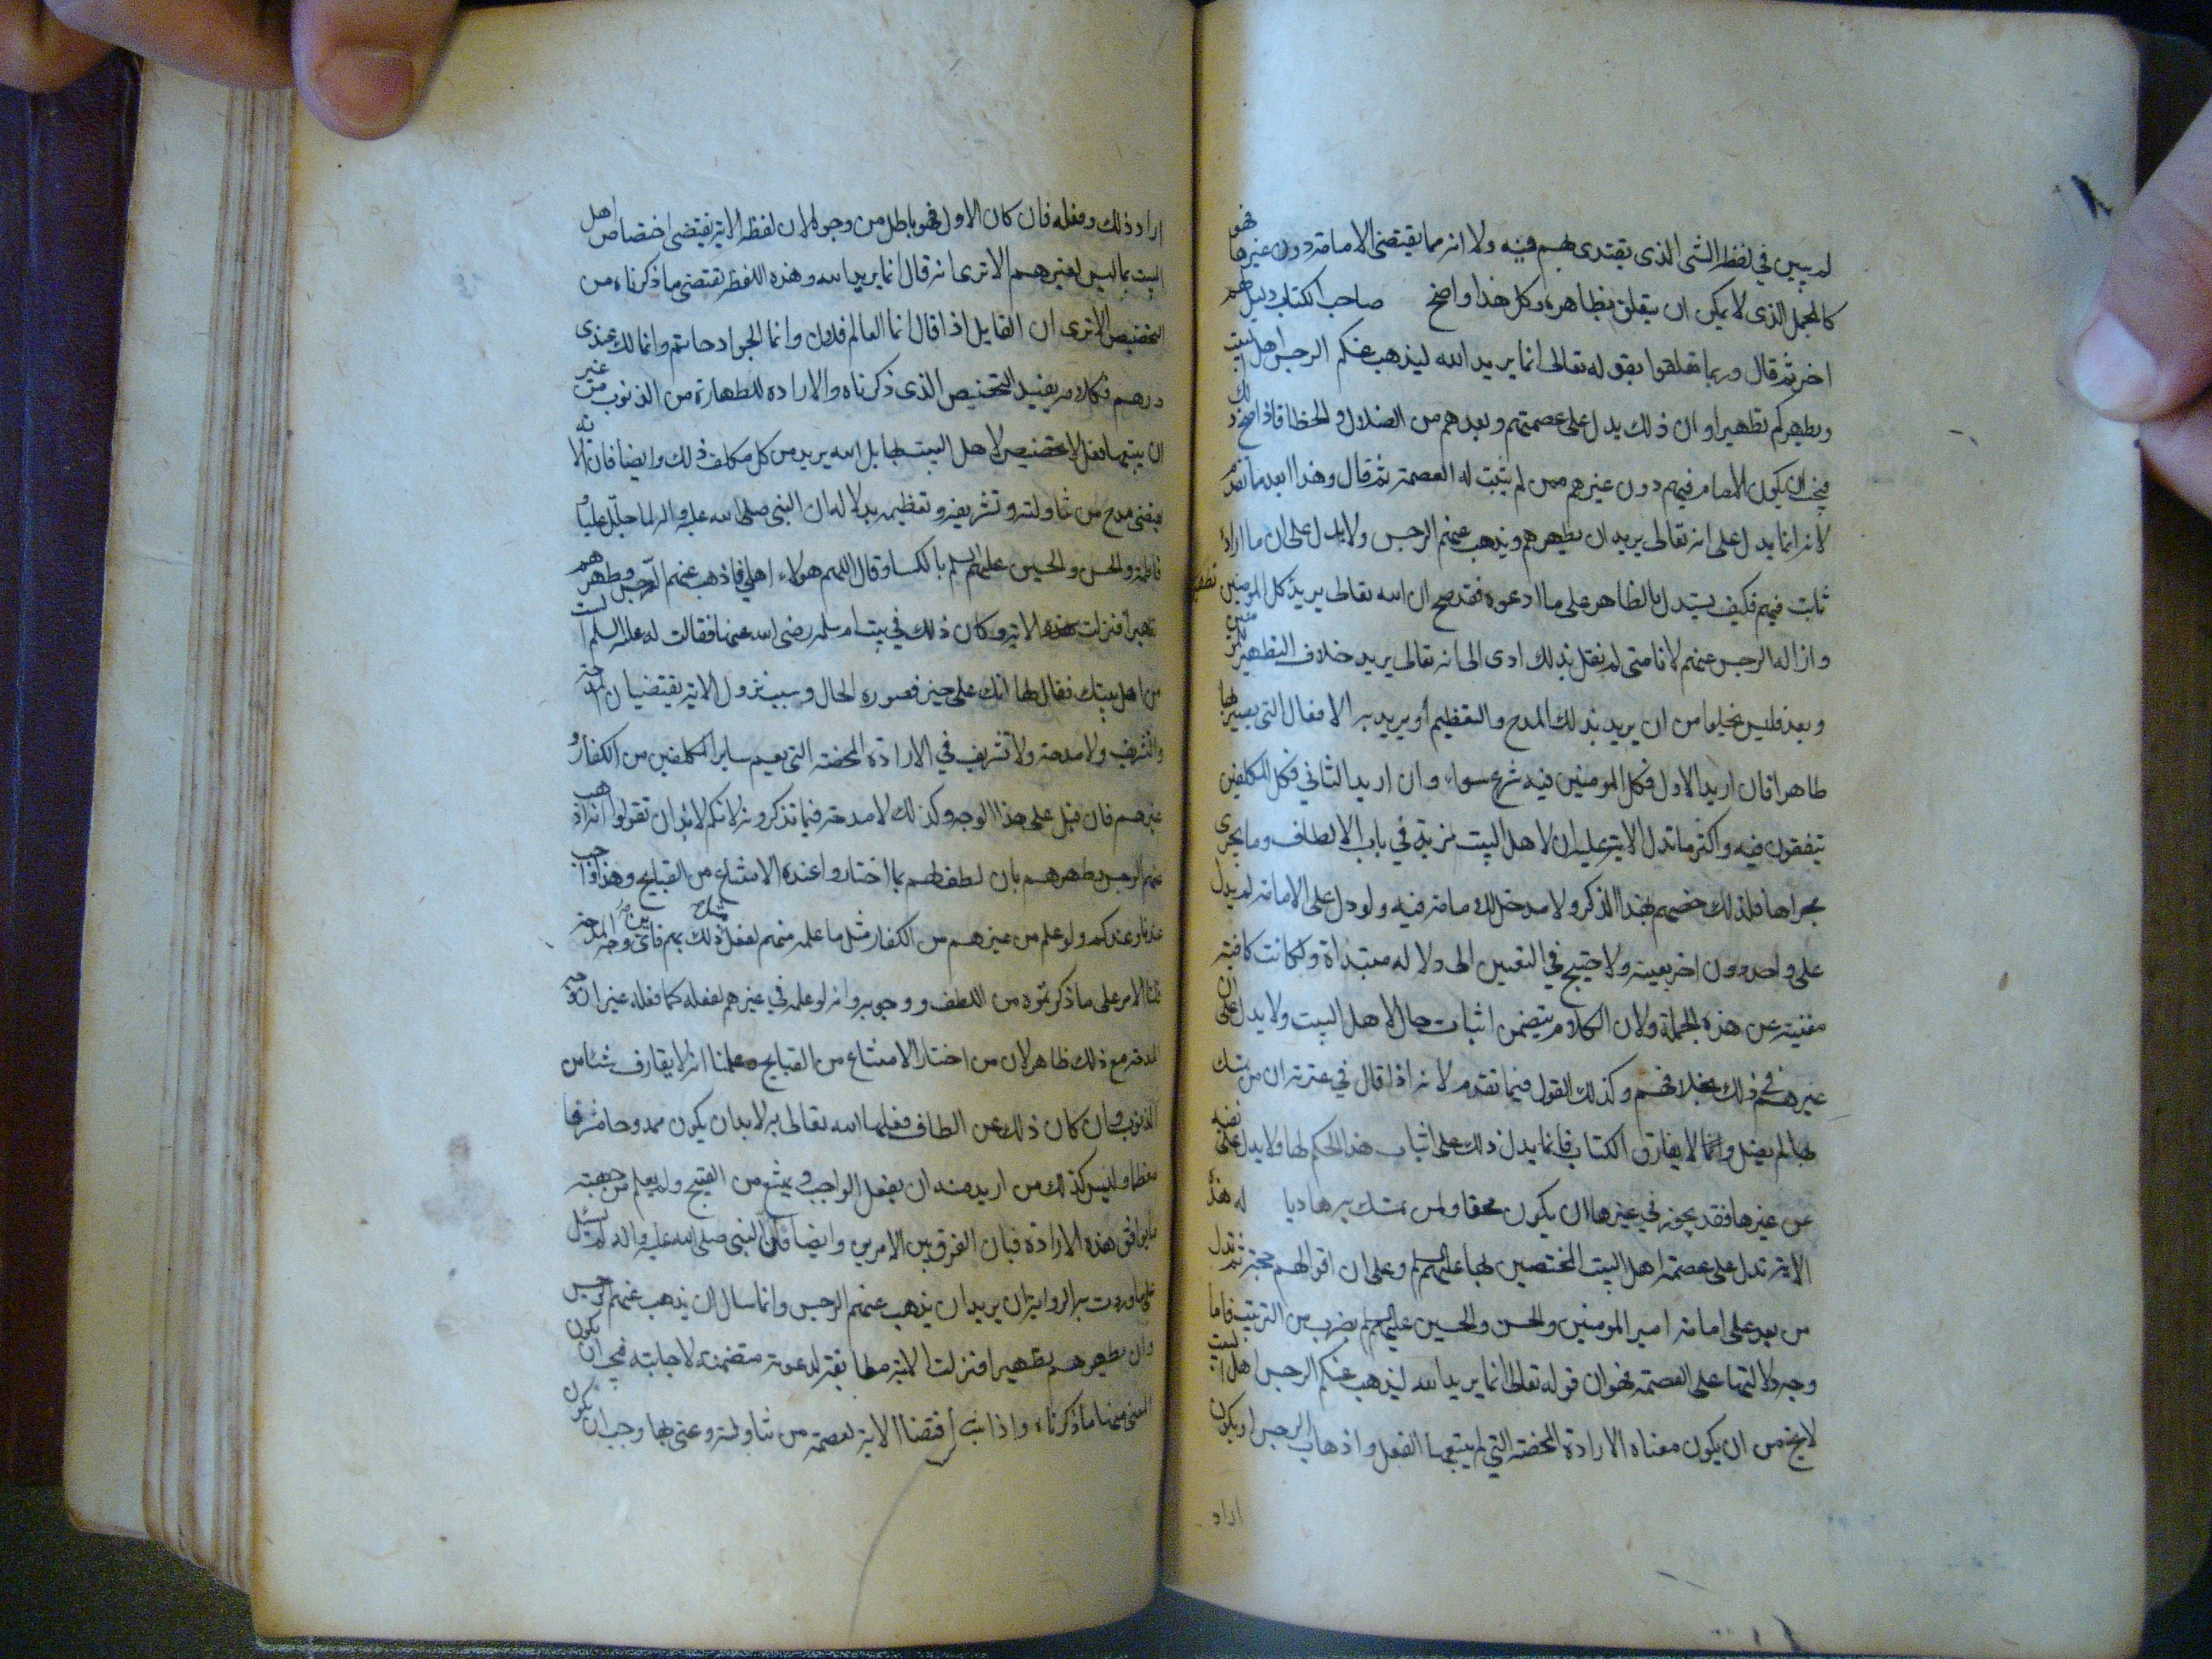 لم يبين في لفظه الشئ الذى يقتدى بهم فيه ولا انه مما يقتضى الامامة دون غيرها فهو
كالمجمل الذى لا يمكن ان يتعلق بظاهره وكل هذا واضح صاحب الكتاب دليل لهم
اخر ثم قال وربما تعلقوا بقوله تعالى انما يريد الله ليذهب عنكم الرجس اهل البيت
ويطهركم تطهيرا وان ذلك يدل على عصمتهم وبعدهم من الضلال والخطا فاذا صح ذلك
فيجب ان يكون الامام فيهم دون غيرهم ممن لم يثبت له العصمة ثم قال وهذا ابعد مما تقدم
لانه انما يدل على انه تعالى يريد ان يطهرهم ويذهب عنهم الرجس ولا يدل على ان ما اراده
ثابت فيهم فكيف يستدل بالظاهر على ما ادعوه فقد صح ان الله تعالى يريد تطهير كل المومنين
وازالة الرجس عنهم لانا متى لم نقل بذلك ادى الى انه تعالى يريد خلاف التطهير للمومنين
وبعد فليس يخلوا من ان يريد بذلك المدح والتعظيم او يريد به الافعال التى يصير بها
طاهرا فان اريد الاول فكل المومنين فيه شرع سواء وان اريد الثاني فكل المكلفين
يتفقون فيه واكثر ما تدل الاية عليه ان لاهل البيت مزية في باب الالطاف وما يجرى
مجراها فلذلك خصهم بهذا الذكر ولا مدخل للامامة فيه ولو دل على الامامة لم يدل
على واحد دون اخر بعينه ولا حتيج في التعيين الى دلاله مبتداة ولكانت كافية
مغنية عن هذه الجملة ولان الكلام يتضمن اثبات حال لاهل البيت ولا يدل على ان
غيرهم في ذلك بخلافهم وكذلك القول فيما تقدم لانه اذا قال في عترته ان من تمسك
بها لم يضل وانها لا يفارق الكتاب فانما يدل ذلك على اثبات هذا الحكم لها ولا يدل على نفيه
عن غيرها فقد يجوز في غيرها ان يكون محقا ولمن تمسك به هاديا له هذه
الاية تدل على عصمة اهل البيت المختصين بها عليهم السلم وعلى ان اقوالهم حجة ثم تدل
من بعد على امامة امير المومنين والحسن والحسين عليهم السلم بضرب من الترتيب فاما
وجه دلالتها على العصمة فهو ان قوله تعالى انما يريد الله ليذهب عنكم الرجس اهل البيت
لا يخ من ان يكون معناه الارادة المحضة التي لم يتبعها الفعل واذهاب الرجس او يكون
اراد
اراد ذلك وفعله فان كان الاول فهو باطل من وجوه لان لفظ الاية يقتضى اختصاص اهل
البيت بما ليس لغيرهم الا ترى انه قال انما يريد الله وهذه اللفظة تقتضى ما ذكرناه من
التخصيص الا ترى ان القايل اذا قال انما العالم فلان وانما الجواد حاتم وانما لك عندى
درهم فكلامه يفيد التخصيص الذى ذكرناه والارادة للطهارة من الذنوب من غير
ان يتبعها فعل لا تخصيص لاهل البيت بها بل الله يريد من كل مكلف ذلك وايضا فان الاية
يقتضى مدح من تناولته وتشريفه وتعظيمه بدلالة ان النبي صلى الله عليه واله لما جلل عليا و
فاطمة والحسن والحسين عليهم السلم بالكسا وقال اللهم هولاء اهلي فاذهب عنهم الرجس وطهرهم
تطهيرا فنزلت هذه الاية وكان ذلك في بيت ام سلمه رضى الله عنها فقالت له عليه السلم الست
من اهل بيتك فقال لها انك على خير فصورة الحال وسبب نزول الاية يقتضيان المدحة
والتشريف ولا مدحة ولا تشريف في الارادة المحضة التى يعم ساير المكلفين من الكفار و
غيرهم فان قيل على هذا الوجه وكذلك لا مدحة فيما تذكرونه لانكم لابد ان تقولوا انه اذهب
عنهم الرجس وطهرهم بان لطف لهم بما اختاروا عنده الامتناع من القبايح وهذا واجب
عندنا وعندكم ولو علم من غيرهم من الكفار مثل ما علمه منهم لفعل مثل ذلك بهم فاى وجه بين المدحة
قلنا الامر على ما ذكرتموه من اللطف ووجوبه وانه لو علمه في غيرهم لفعله كما فعله غير ان وجه
المدحة مع ذلك ظاهر لان من اختار الامتناع من القبايح وعلمنا انه لا يقارف شئا من
الذنوب وان كان ذلك عن الطاف فعلها الله تعالى به لابد ان يكون ممدوحا مشرفا
معظما وليس كذلك من اريد منه ان يفعل الواجب ويمتنع من القبيح ولم يعلم من جهته
ما يوافق هذه الارادة فبان الفرق بين الامرين وايضا فان النبي صلى الله عليه واله لم يسئل
على ما وردت به الرواية ان يريد ان يذهب عنهم الرجس وانما سال ان يذهب عنهم الرجس
وان يطهرهم تطهيرا فنزلت الاية مطابقة لدعوته متضمنه لاجابته فيجب ان يكون
المعنى فيها ما ذكرناه واذا ثبت اقتضا الاية لعصمة من تناولته وعنى بها وجب ان يكون